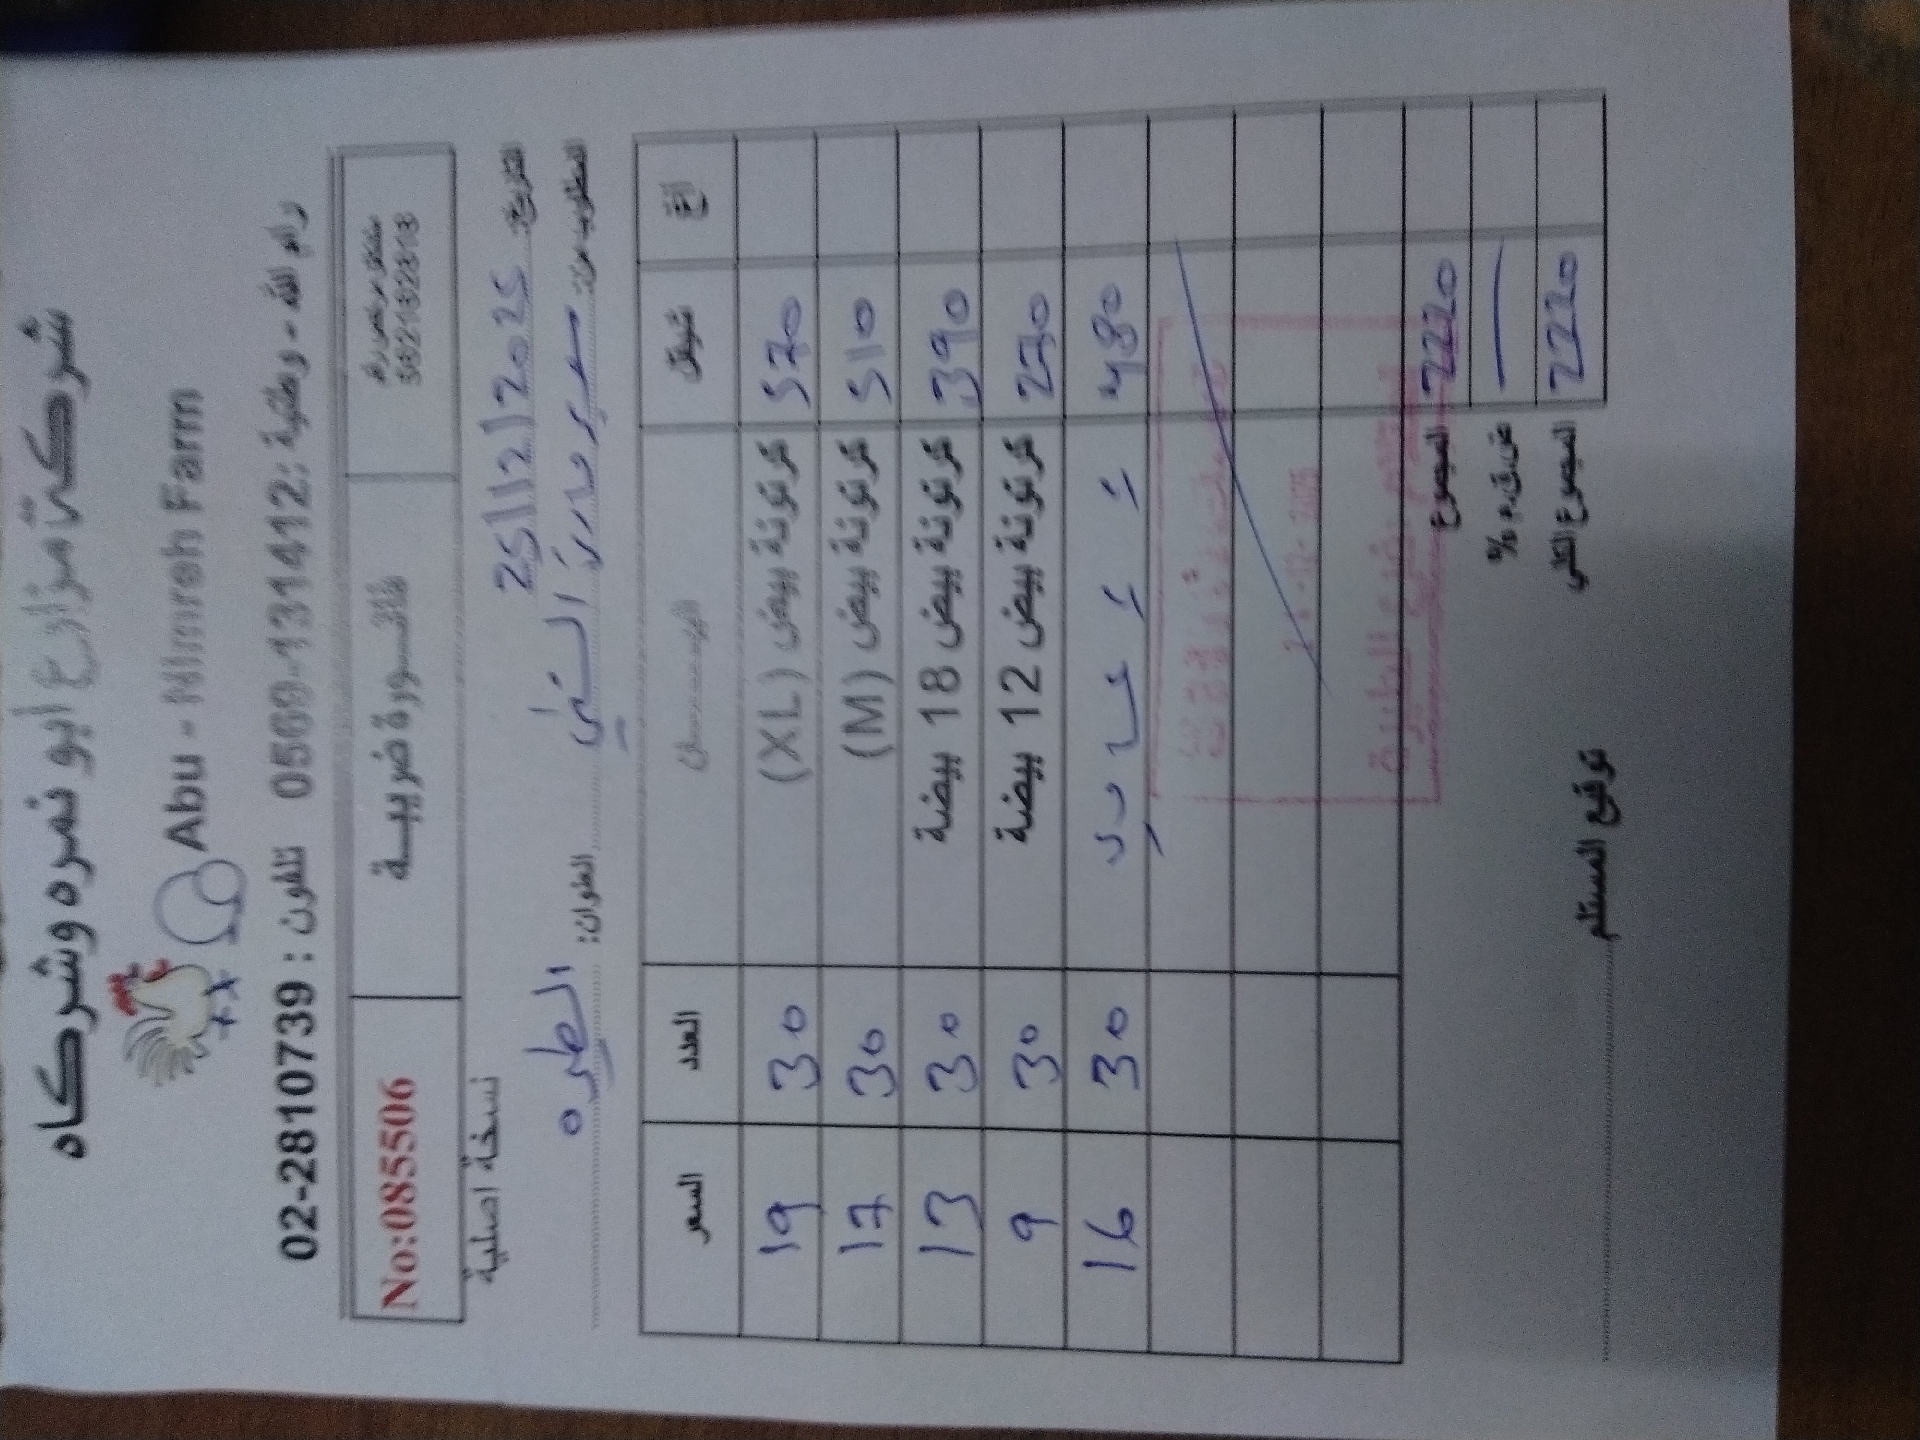 شركة مزارع ابو نمره وشركاه
Abu - Nimreh Farm
رام الله - وطنية: 0569-131412 تلفون: 02-2810739
مشتغل مرخص رقم
فاتورة ضريبية
No:085506
التاريخ: 25/12/2025
نسخة اصلية
المطلوب من: سوبر ماركت
العنوان: الطيره
السعر العدد البيان شيقل اغ
19 30 كرتونة بيض (XL) 570
17 30 كرتونة بيض (M) 510
13 30 كرتونة بيض 18 بيضة 390
9 30 كرتونة بيض 12 بيضة 270
16 30 480
المجموع 2220
ض.ق.م % —
المجموع الكلي 2220
توقيع المستلم